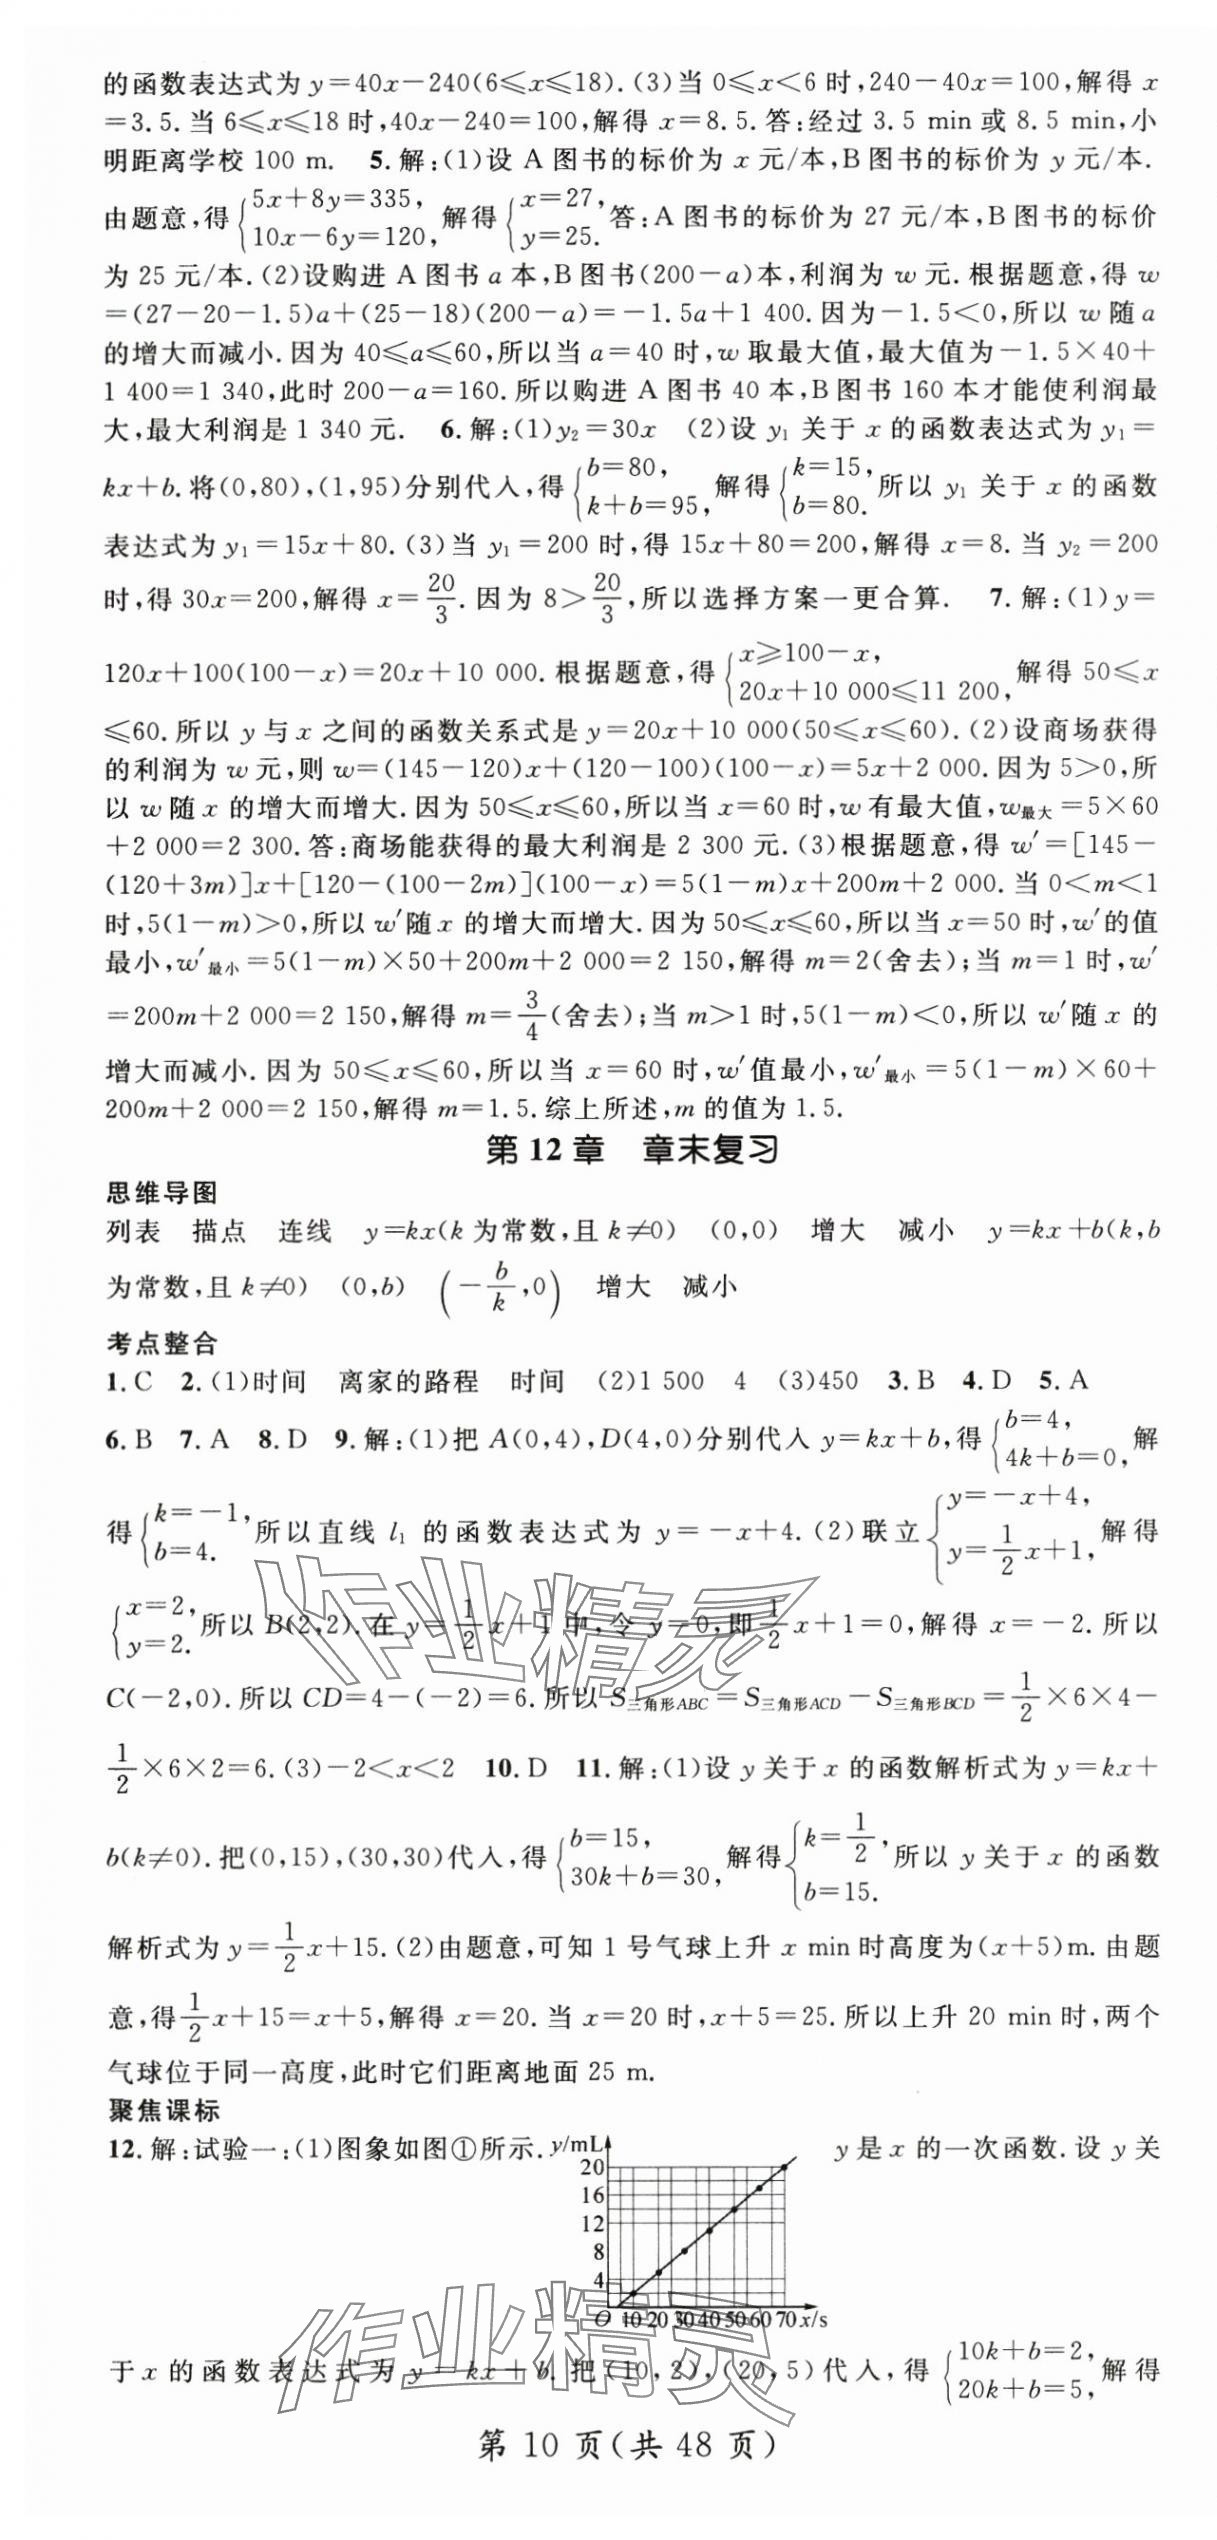 的函数表达式为 y=40x-240(6≤x≤18).(3)当 0≤x<6 时,240-40x=100,解得 x
=3.5.当 6≤x≤18 时,40x-240=100,解得 x=8.5.答:经过 3.5 min 或 8.5 min,小
明距离学校 100 m. 5.解:(1)设 A 图书的标价为 x 元/本,B 图书的标价为 y 元/本.
由题意,得{5x+8y=335, 10x-6y=120,解得{x=27, y=25.答:A 图书的标价为 27 元/本,B 图书的标价
为 25 元/本.(2)设购进 A 图书 a 本,B 图书(200-a)本,利润为 w 元.根据题意,得 w
=(27-20-1.5)a+(25-18)(200-a)=-1.5a+1 400.因为-1.5<0,所以 w 随 a
的增大而减小.因为 40≤a≤60,所以当 a=40 时,w 取最大值,最大值为-1.5×40+
1 400=1 340,此时 200-a=160.所以购进 A 图书 40 本,B 图书 160 本才能使利润最
大,最大利润是 1 340 元. 6.解:(1)y₂=30x (2)设 y₁ 关于 x 的函数表达式为 y₁=
kx+b.将(0,80),(1,95)分别代入,得{b=80, k+b=95,解得{k=15, b=80.所以 y₁ 关于 x 的函数
表达式为 y₁=15x+80.(3)当 y₁=200 时,得 15x+80=200,解得 x=8.当 y₂=200
时,得 30x=200,解得 x=20/3.因为 8>20/3,所以选择方案一更合算. 7.解:(1)y=
120x+100(100-x)=20x+10 000.根据题意,得{x≥100-x, 20x+10 000≤11 200,解得 50≤x
≤60.所以 y 与 x 之间的函数关系式是 y=20x+10 000(50≤x≤60).(2)设商场获得
的利润为 w 元,则 w=(145-120)x+(120-100)(100-x)=5x+2 000.因为 5>0,所
以 w 随 x 的增大而增大.因为 50≤x≤60,所以当 x=60 时,w 有最大值,w最大=5×60
+2 000=2 300.答:商场能获得的最大利润是 2 300 元.(3)根据题意,得 w′=[145-
(120+3m)]x+[120-(100-2m)](100-x)=5(1-m)x+200m+2 000.当 0<m<1
时,5(1-m)>0,所以 w′随 x 的增大而增大.因为 50≤x≤60,所以当 x=50 时,w′的值
最小,w′最小=5(1-m)×50+200m+2 000=2 150,解得 m=2(舍去);当 m=1 时,w′
=200m+2 000=2 150,解得 m=3/4(舍去);当 m>1 时,5(1-m)<0,所以 w′随 x 的
增大而减小.因为 50≤x≤60,所以当 x=60 时,w′值最小,w′最小=5(1-m)×60+
200m+2 000=2 150,解得 m=1.5.综上所述,m 的值为 1.5.
第 12 章 章末复习
思维导图
列表 描点 连线 y=kx(k 为常数,且 k≠0) (0,0) 增大 减小 y=kx+b(k,b
为常数,且 k≠0) (0,b) (-b/k,0) 增大 减小
考点整合
1.C 2.(1)时间 离家的路程 时间 (2)1 500 4 (3)450 3.B 4.D 5.A
6.B 7.A 8.D 9.解:(1)把 A(0,4),D(4,0)分别代入 y=kx+b,得{b=4, 4k+b=0,解
得{k=-1, b=4.所以直线 l₁ 的函数表达式为 y=-x+4.(2)联立{y=-x+4, y=1/2x+1,解得
{x=2, y=2.所以 B(2,2).在 y=1/2x+1 中,令 y=0,即1/2x+1=0,解得 x=-2.所以
C(-2,0).所以 CD=4-(-2)=6.所以 S三角形ABC=S三角形ACD-S三角形BCD=1/2×6×4-
1/2×6×2=6.(3)-2<x<2 10.D 11.解:(1)设 y 关于 x 的函数解析式为 y=kx+
b(k≠0).把(0,15),(30,30)代入,得{b=15, 30k+b=30,解得{k=1/2, b=15.所以 y 关于 x 的函数
解析式为 y=1/2x+15.(2)由题意,可知 1 号气球上升 x min 时高度为(x+5)m.由题
意,得1/2x+15=x+5,解得 x=20.当 x=20 时,x+5=25.所以上升 20 min 时,两个
气球位于同一高度,此时它们距离地面 25 m.
聚焦课标
12.解:试验一:(1)图象如图①所示. y/mL 20 16 12 8 4 O 10 20 30 40 50 60 70 x/s y 是 x 的一次函数.设 y 关
于 x 的函数表达式为 y=kx+b.把(10,2),(20,5)代入,得{10k+b=2, 20k+b=5,解得
作业精灵
作业精灵
第 10 页(共 48 页)